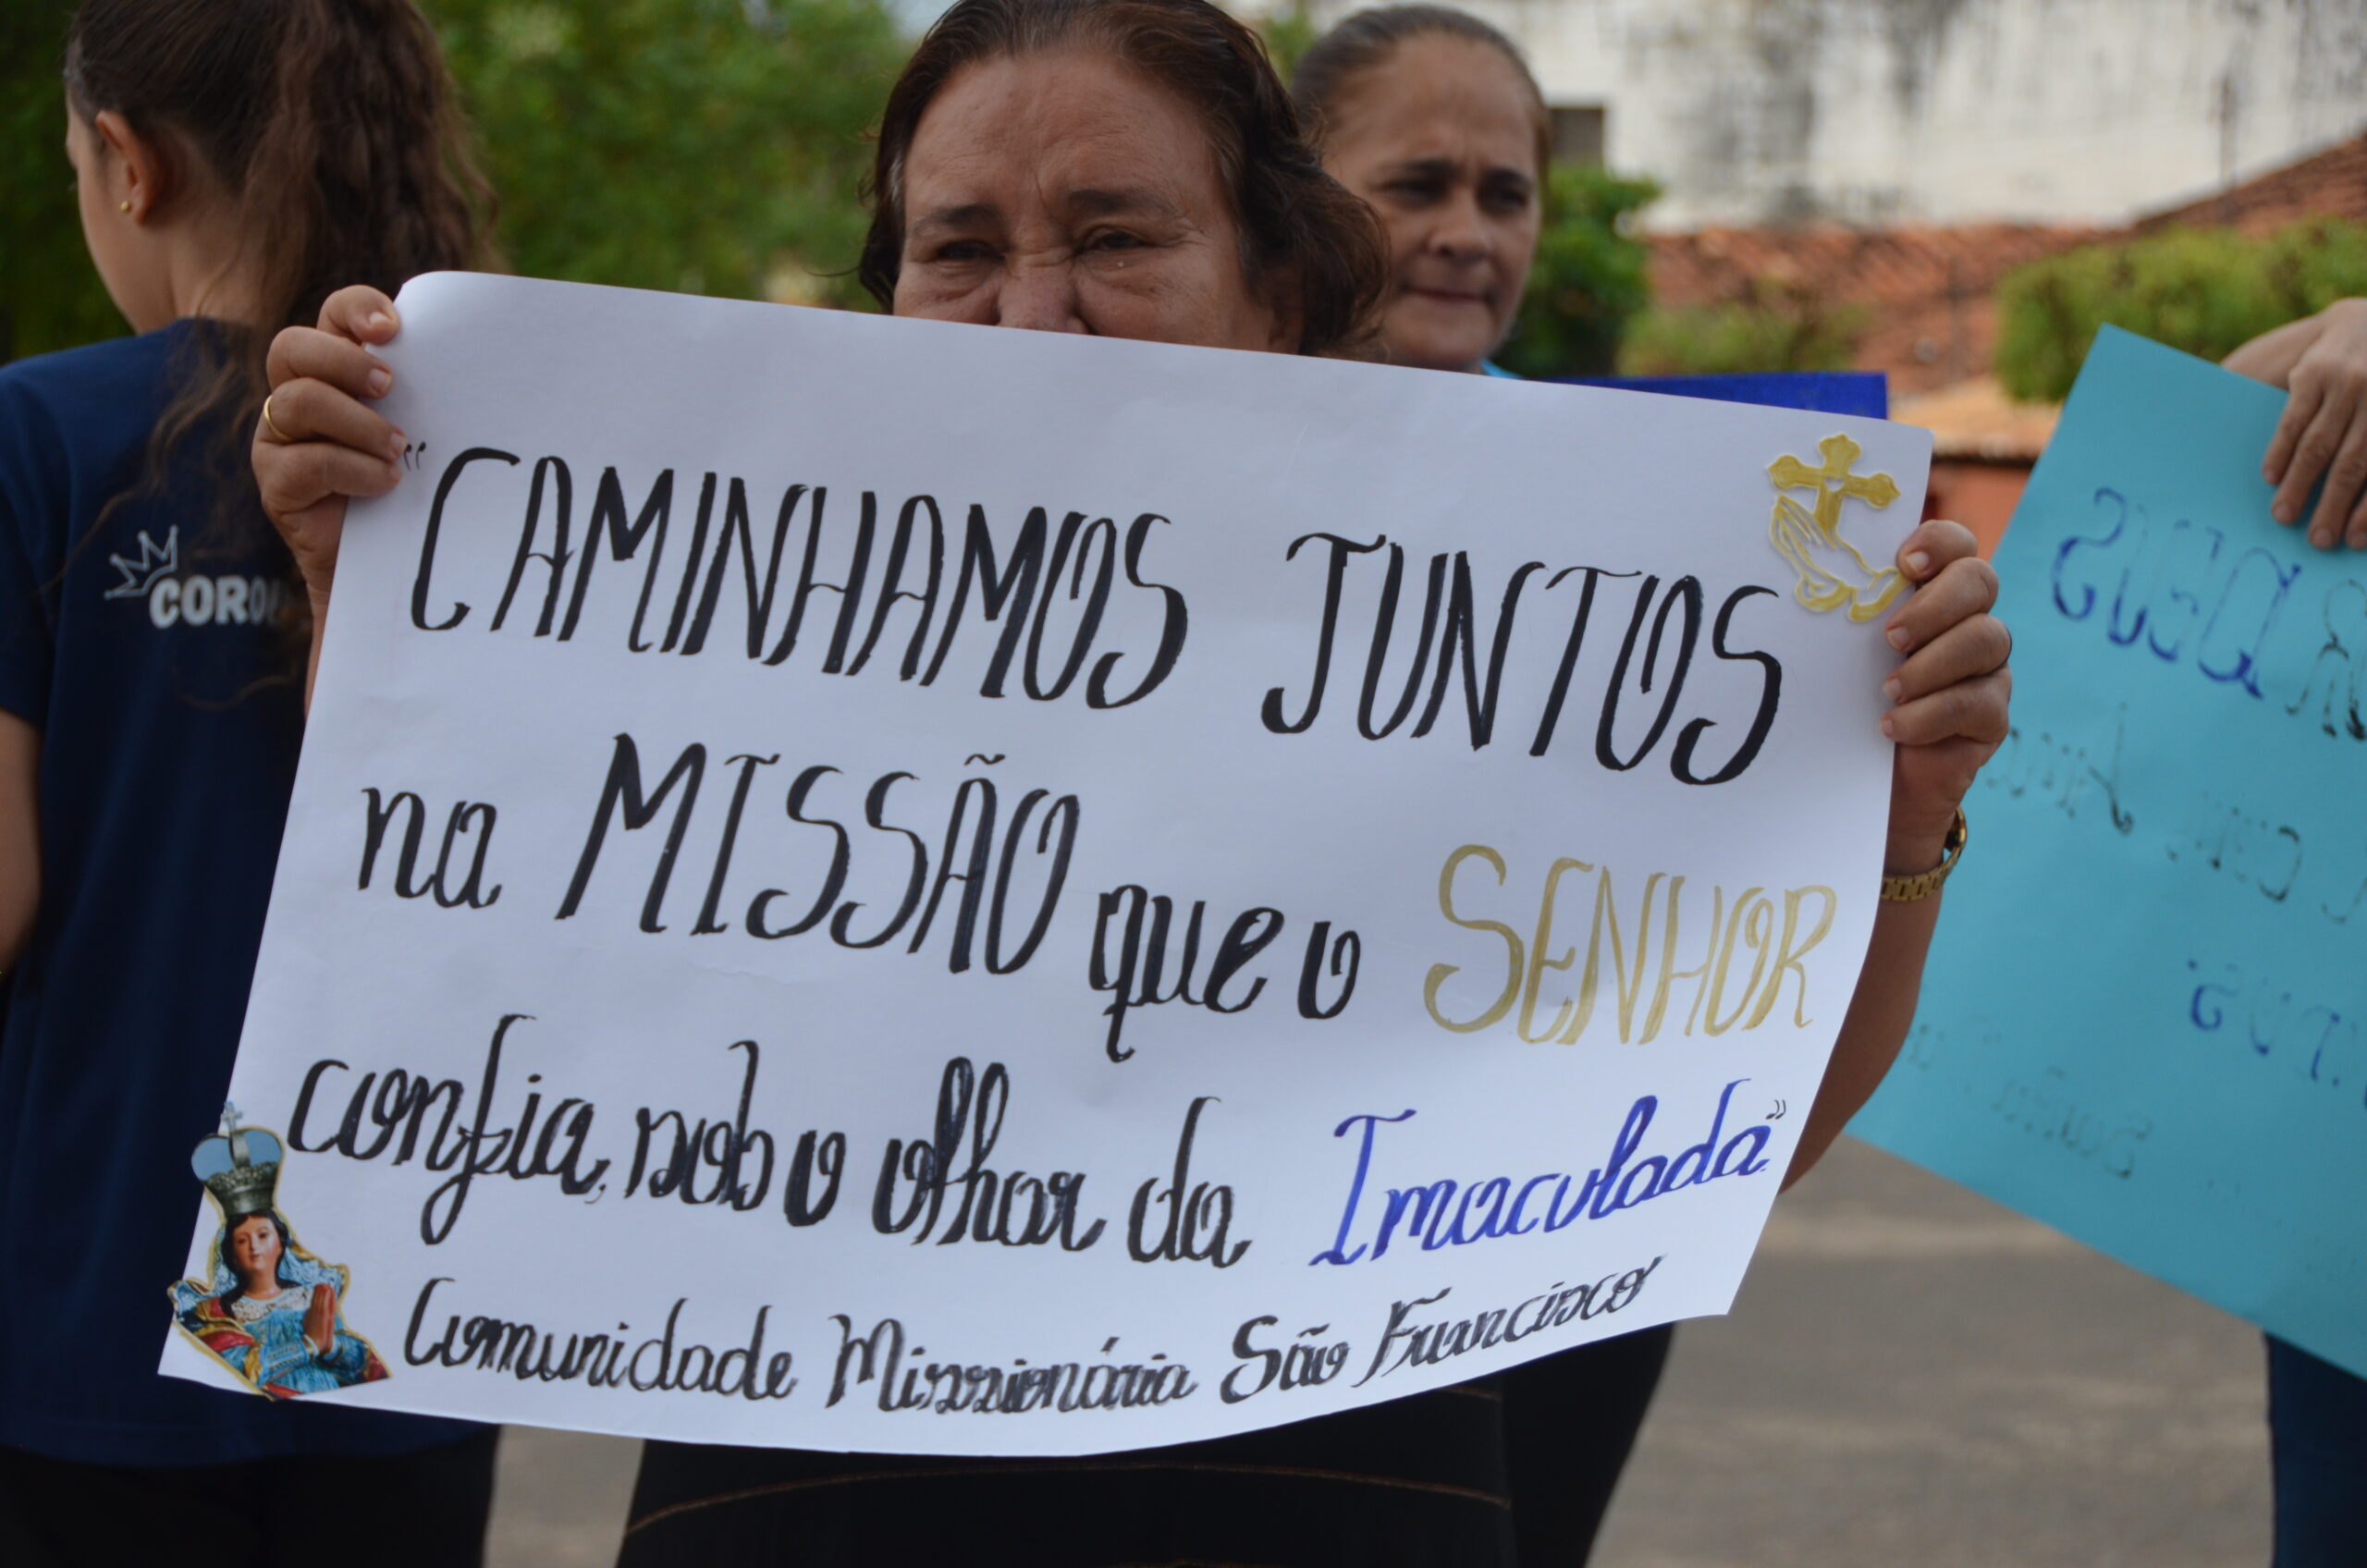 "CAMINHAMOS JUNTOS
na MISSÃO que o SENHOR
confia, sob o olhar da Imaculada"
Comunidade Missionária São Francisco
DEUS